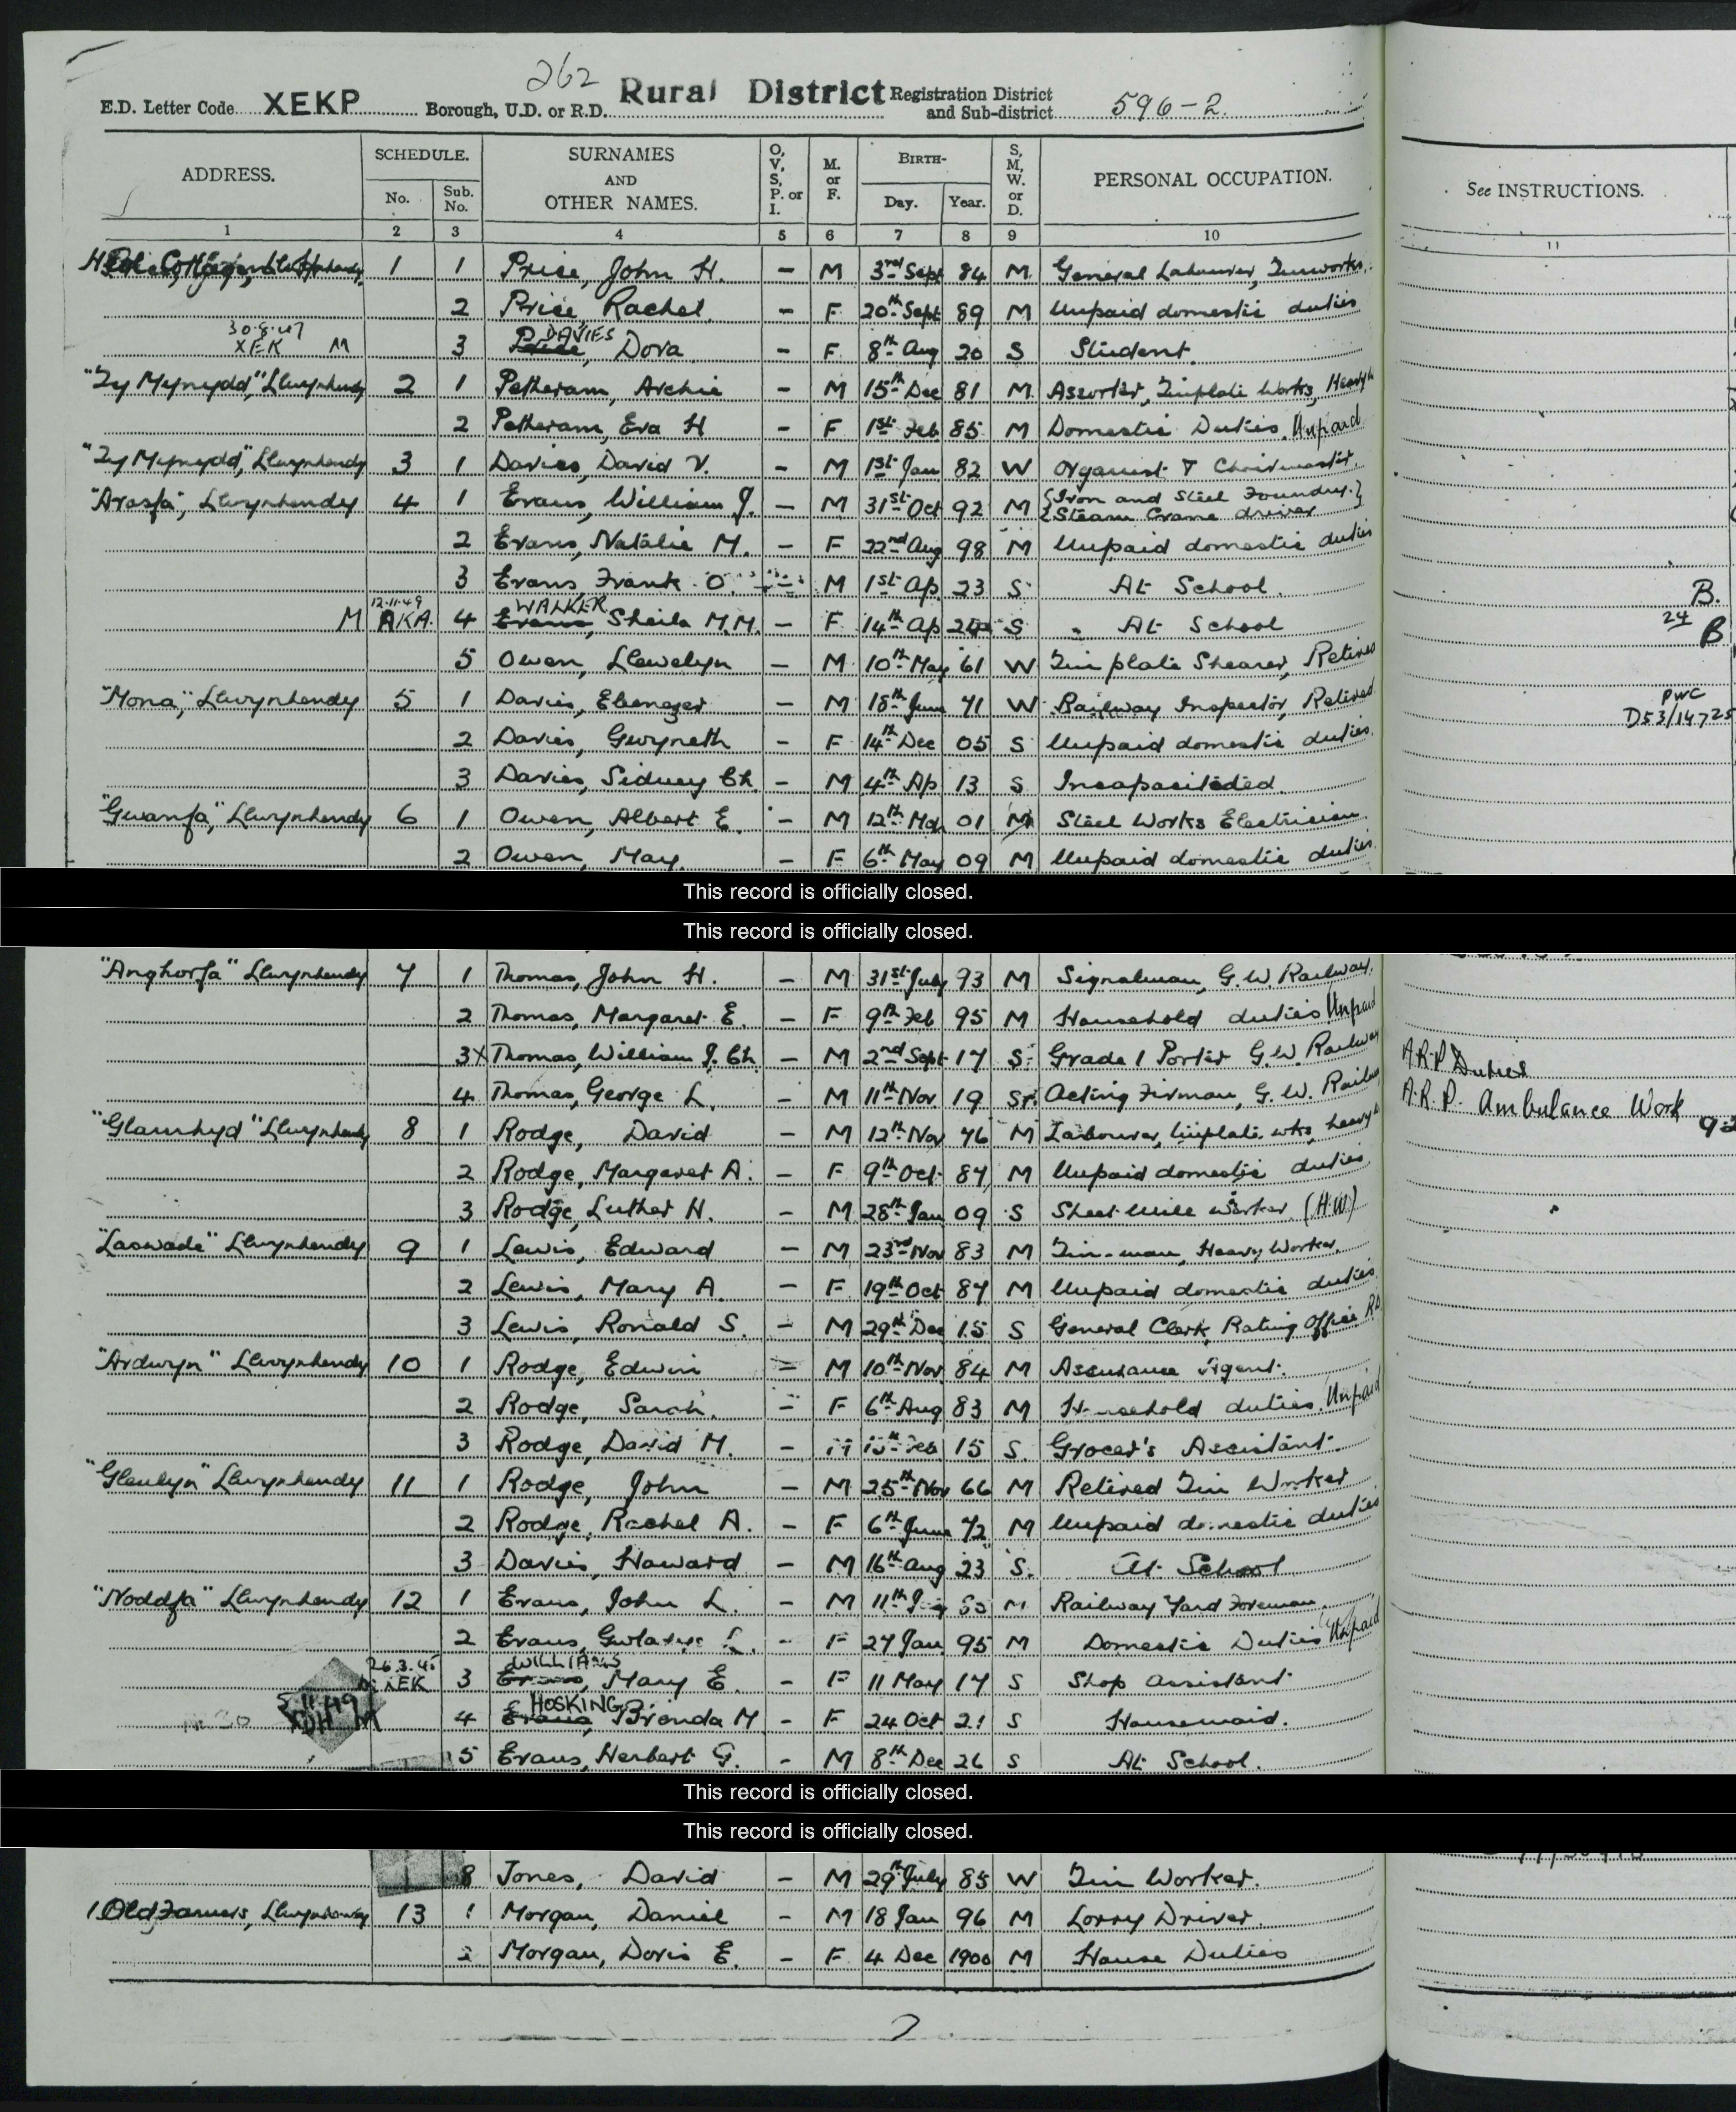 262
E.D. Letter Code XEKP Borough, U.D. or R.D. Rural District Registration District and Sub-district 596-2
ADDRESS. SCHEDULE. No. Sub. No. SURNAMES AND OTHER NAMES. O, V, S, P. or I. M. or F. BIRTH- Day. Year. S, M, W. or D. PERSONAL OCCUPATION. See INSTRUCTIONS.
1 2 3 4 5 6 7 8 9 10 11
1 1 Price, John H. – M 3rd Sept 84 M. General Labourer, Tinworks.
2 Price Rachel. – F 20th Sept 89 M Unpaid domestic duties
30.8.47
XEK M 3 DAVIES Price, Dora – F 8th Aug 20 S Student.
"Ty Mynydd," Llwynhendy 2 1 Petheram, Archie – M 15th Dec 81 M. Assorter, Tinplate Works, Heavy
2 Petheram, Eva H – F 1st Feb 85 M Domestic Duties. Unpaid
"Ty Mynydd," Llwynhendy 3 1 Davies, David V. – M 1st Jan 82 W Organist & Choirmaster.
"Arosfa", Llwynhendy 4 1 Evans, William J. – M 31st Oct 92 M {Iron and Steel Foundry.}
{Steam Crane driver
2 Evans, Natalie M. – F 22nd Aug 98 M Unpaid domestic duties
3 Evans Frank O. – M 1st Ap 23 S At School. B.
M 12.11.49 AKA. 4 WALKER Evans, Sheila M.M. – F 14th Ap 24 S At School 24 B
5 Owen, Llewelyn – M 10th May 61 W Tin plate Shearer, Retired
"Mona", Llwynhendy 5 1 Davies, Ebenezer – M 18th June 71 W Railway Inspector, Retired PWC
D53/14725
2 Davies, Gwyneth – F 14th Dec 05 S Unpaid domestic duties.
3 Davies, Sidney Ch. – M 4th Ap 13 S Incapacitated.
"Gwanfa," Llwynhendy 6 1 Owen, Albert E. – M 12th 01 M Steel Works Electrician
2 Owen, May. – F 6th May 09 M Unpaid domestic duties.
This record is officially closed.
This record is officially closed.
"Anghorfa" Llwynhendy 7 1 Thomas, John H. – M 31st July 93 M Signalman, G.W. Railway.
2 Thomas, Margaret E. – F 9th Feb 95 M Household duties Unpaid
3X Thomas, William J. Ch – M 2nd Sept 17 S. Grade 1 Porter G.W. Railway A.R.P Duties
4 Thomas, George L. – M 11th Nov 19 S. Acting Fireman, G.W. A.R.P. Ambulance Work
"Glanrhyd" Llwynhendy 8 1 Rodge, David – M 12th Nov 76 M Labourer, tinplate wks, heavy
2 Rodge, Margaret A. – F 9th Oct 87 M Unpaid domestic duties
3 Rodge, Luther H. – M 28th Jan 09 S Sheet Mill Worker. (H.W)
"Laswade" Llwynhendy 9 1 Lewis, Edward – M 23rd Nov 83 M Tin-man, Heavy Worker.
2 Lewis, Mary A. – F 19th Oct 87 M Unpaid domestic duties
3 Lewis, Ronald S. – M 29th Dec 15 S General Clerk, Rating Office
"Ardwyn" Llwynhendy 10 1 Rodge, Edwin – M 10th Nov 84 M Assurance Agent.
2 Rodge, Sarah. – F 6th Aug 83 M Household duties. Unpaid
3 Rodge, David M. – Feb 15 S. Grocer's Assistant.
"Glenlyn" Llwynhendy 11 1 Rodge, John – M 25th Nov 66 M Retired Tin Worker
2 Rodge, Rachel A. – F 6th June 72 M Unpaid domestic duties
3 Davies, Howard – M 16th Aug 23 S. At School
"Noddfa" Llwynhendy 12 1 Evans, John L. – M 11th M Railway Yard Foreman.
2 Evans, – F 27 Jan 95 M Domestic Duties Unpaid
26.3.45 XEK 3 WILLIAMS Evans, Mary E. – F 11 May 17 S Shop Assistant
4 HOSKING Evans, Brenda M. – F 24 Oct 21 S Housemaid.
5 Evans, Herbert G. – M 8th Dec 26 S At School.
This record is officially closed.
This record is officially closed.
8 Jones, David – M 29th July 85 W Tin Worker.
1. Old Farmers, 13 1 Morgan, Daniel – M 18 Jan 96 M Lorry Driver.
2 Morgan, Doris E. – F 4 Dec 1900 M House Duties